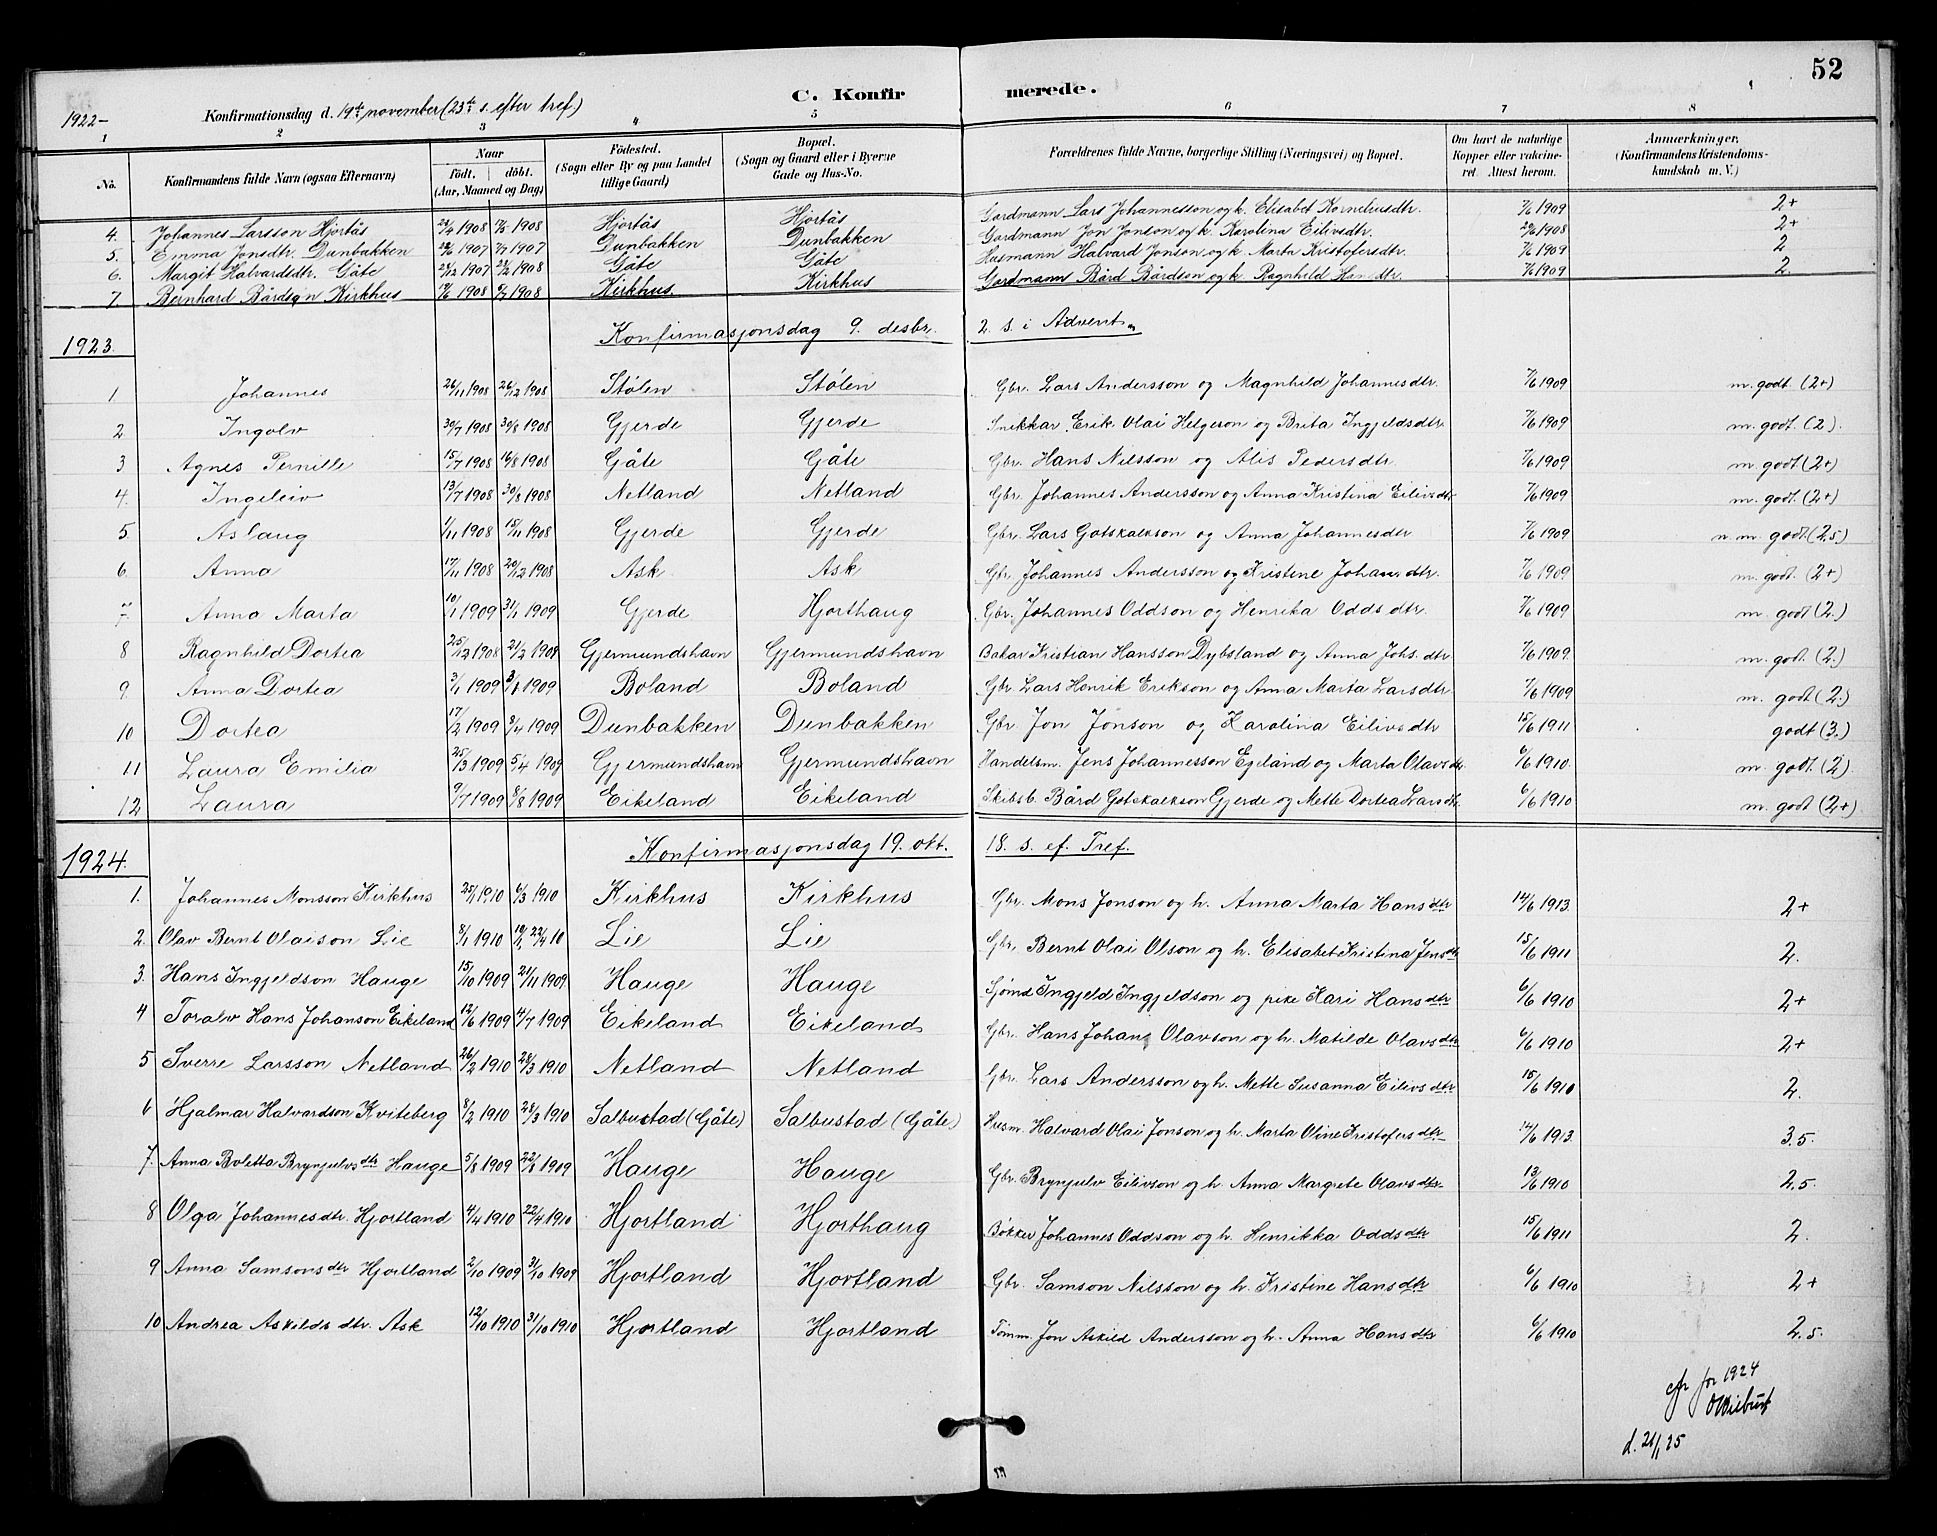 52
C. Konfirmerede.
1922- Konfirmationsdag d. 19de november (23de s. efter tref)
1 2 3 4 5 6 7 8
No. Konfirmandens fulde Navn (ogsaa Efternavn) Naar födt. döbt. (Aar, Maaned og Dag) Födested. (Sogn eller By og paa Landet tillige Gaard) Bopæl. (Sogn og Gaard eller i Byerne Gade og Hus-No. Forældrenes fulde Navne, borgerlige Stilling (Næringsvei) og Bopæl. Om havt de naturlige Kopper eller vakcineret. Attest herom. Anmærkninger, (Konfirmandens Kristendomskundskab m. V.)
4. Johannes Larsson Hjortås 1908 1908 Hjortås Hjortås Gardmann Lars Johannesson og k. Elisabet Korneliusdtr. 7/6 1909 2+
5. Emma Jonsdtr. Dunbakken 1907 1907 Dunbakken Dunbakken Gardmann Jon Jonson og k. Karolina Eilivsdtr. 1908 2+
6. Margit Halvardsdtr. Gåte 1907 1908 Gåte Gåte Husmann Halvard Jonson og k. Marta Kristofersdtr. 7/6 1909 2
7 Bernhard Bårdson Kirkhus 1908 1908 Kirkhus Kirkhus Gardmann Bård Bårdson og k. Ragnhild Hansdtr. 7/6 1909 2.
1923. Konfirmasjonsdag 9. desbr. 2 s. i Advent.
1 Johannes 26/11 1908 26/12 1908 Stølen Stølen Gbr. Lars Andersson og Magnhild Johannesdtr. 7/6 1909 m. godt. (2+)
2 Ingolv 30/7 1908 30/8 1908 Gjerde Gjerde Snikkar Erik Olai Helgeson og Brita Ingjeldsdtr. 7/6 1909 m. godt. (2).
3 Agnes Pernille 15/7 1908 16/8 1908 Gåte Gåte Gbr. Hans Nilsson og Alis Pedersdtr. 7/6 1909 m. godt (2+)
4 Ingeleiv 13/7 1908 30/8 1908 Netland Netland Gbr. Johannes Andersson og Anna Kristina Eilivsdtr. 7/6 1909 m. godt. (2+)
5 Aslaug 1/11 1908 15/11 1908 Gjerde Gjerde Gbr. Lars Gotskalkson og Anna Johannesdtr 7/6 1909 n. m. godt. (2,5)
6 Anna 17/11 1908 20/12 1908 Ask Ask Gbr Johannes Andersson og Kristine Johan.dtr. 7/6 1909 m. godt. (2+)
7 Anna Marta 10/1 1909 31/1 1909 Gjerde Hjorthaug Gbr. Johannes Oddson og Henrika Oddsdtr. 7/6 1909 m. godt (2.)
8 Ragnhild Dortea 25/12 1908 21/2 1909 Gjermundshavn Gjermundshavn Bakar Kristian Hansson Dybsland og Anna Johs.dtr 7/6 1909. m. godt. (2.)
9 Anna Dortea 3/1 1909 1909 Boland Boland Gbr Lars Henrik Erikson og Anna Marta Larsdtr. 7/6 1909 m. godt (2.)
10 Dortea 17/2 1909 3/4 1909 Dunbakken Dunbakken Gbr. Jon Jonson og Karolina Eilivsdtr 15/6 1911 godt (3.)
11 Laura Emilia 25/3 1909 5/4 1909 Gjermundshavn Gjermundshavn Handelsm. Jens Johannesson Egeland og Marta Olavsdtr. 6/6 1910. m. godt. (2).
12 Laura 9/7 1909 8/8 1909 Eikeland Eikeland Skibsb. Bård Gotskalkson Gjerde og Mette Dortea Larsdtr. 6/6 1910 m. godt (2+)
1924. Konfirmasjonsdag 19. okt. 18. s. ef. Tref.
1. Johannes Monsson Kirkhus 25/1 1910 6/3 1910 Kirkhus Kirkhus Gbr. Mons Jonson og h. Anna Marta Hansdtr 14/6 1913 2+
2. Olav Bernt Olaison Lie 8/1 1910 22/4 10 Lie Lie Gbr. Bernt Olai Olson og h. Elisabet Kristina Jensdtr 15/6 1911 2.
3. Hans Ingjeldson Hauge 15/10 1909 21/11 1909 Hauge Hauge Sjømd Ingjeld Ingjeldson og pike Kari Hansdtr 6/6 1910 2+
4 Toralv Hans Johanson Eikeland 12/6 1909 4/7 1909 Eikeland Eikeland Gbr. Hans Johan Olavson og h. Matilde Olavsdtr 6/6 1910 2+
5 Sverre Larsson Netland 26/2 1910 28/3 1910 Netland Netland Gbr. Lars Andersson og h. Mette Susanna Eilivsdtr 15/6 1910 2.
6 Hjalmar Halvardson Kviteberg 8/2 1910 28/3 1910 Salbustad (Gåte) Salbustad (Gåte) Husm. Halvard Olai Jonson og h. Marta Oline Kristofersdtr. 14/6 1913 3,5.
7. Anna Boletta Brynjulvsdtr Hauge 5/8 1909 22/8 1909 Hauge Hauge Gbr. Brynjulv Eilivson og h. Anna Margrete Olavsdtr. 13/6 1910 2,5.
8 Olga Johannesdtr. Hjortland 4/4 1910 22/4 1910 Hjortland Hjorthaug Bøkker Johannes Oddson og h. Henrikka Oddsdtr 15/6 1911 2.
9 Anna Samsonsdtr Hjortland 2/10 1909 31/10 1909 Hjortland Hjortland Gbr. Samson Nilsson og h. Kristine Hansdtr 6/6 1910 2+
10 Andrea Askildsdtr. Ask 12/10 1910 31/10 1910 Hjortland Hjortland Tømm. Jon Askild Andersson og h. Anna Hansdtr 6/6 1910 2,5.
for 1924
d. 21/1 25